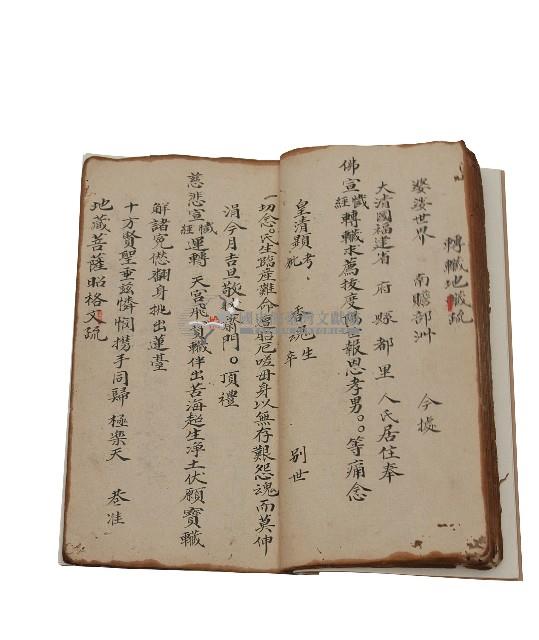 轉轆地藏疏
娑婆世界 南贍部洲 今據
大清國福建省 府縣都里 人氏居住奉
佛宣經懺轉轆求薦拔度陽世報恩孝男。。等痛念
皇清顯考妣 香魂 生卒 別世
一切念氏生臨産難命 胎厄嗟毋身以無存艱怨魂而莫伸
涓今月吉旦敬 門。頂禮
慈悲宣經懺運轉 天宮飛寶轆伴出苦海超生淨土伏願寶轆
解諸冤愆翻身挑出蓮臺
十方賢聖垂茲憐憫携手同歸 極樂天
地藏菩薩昭格文疏